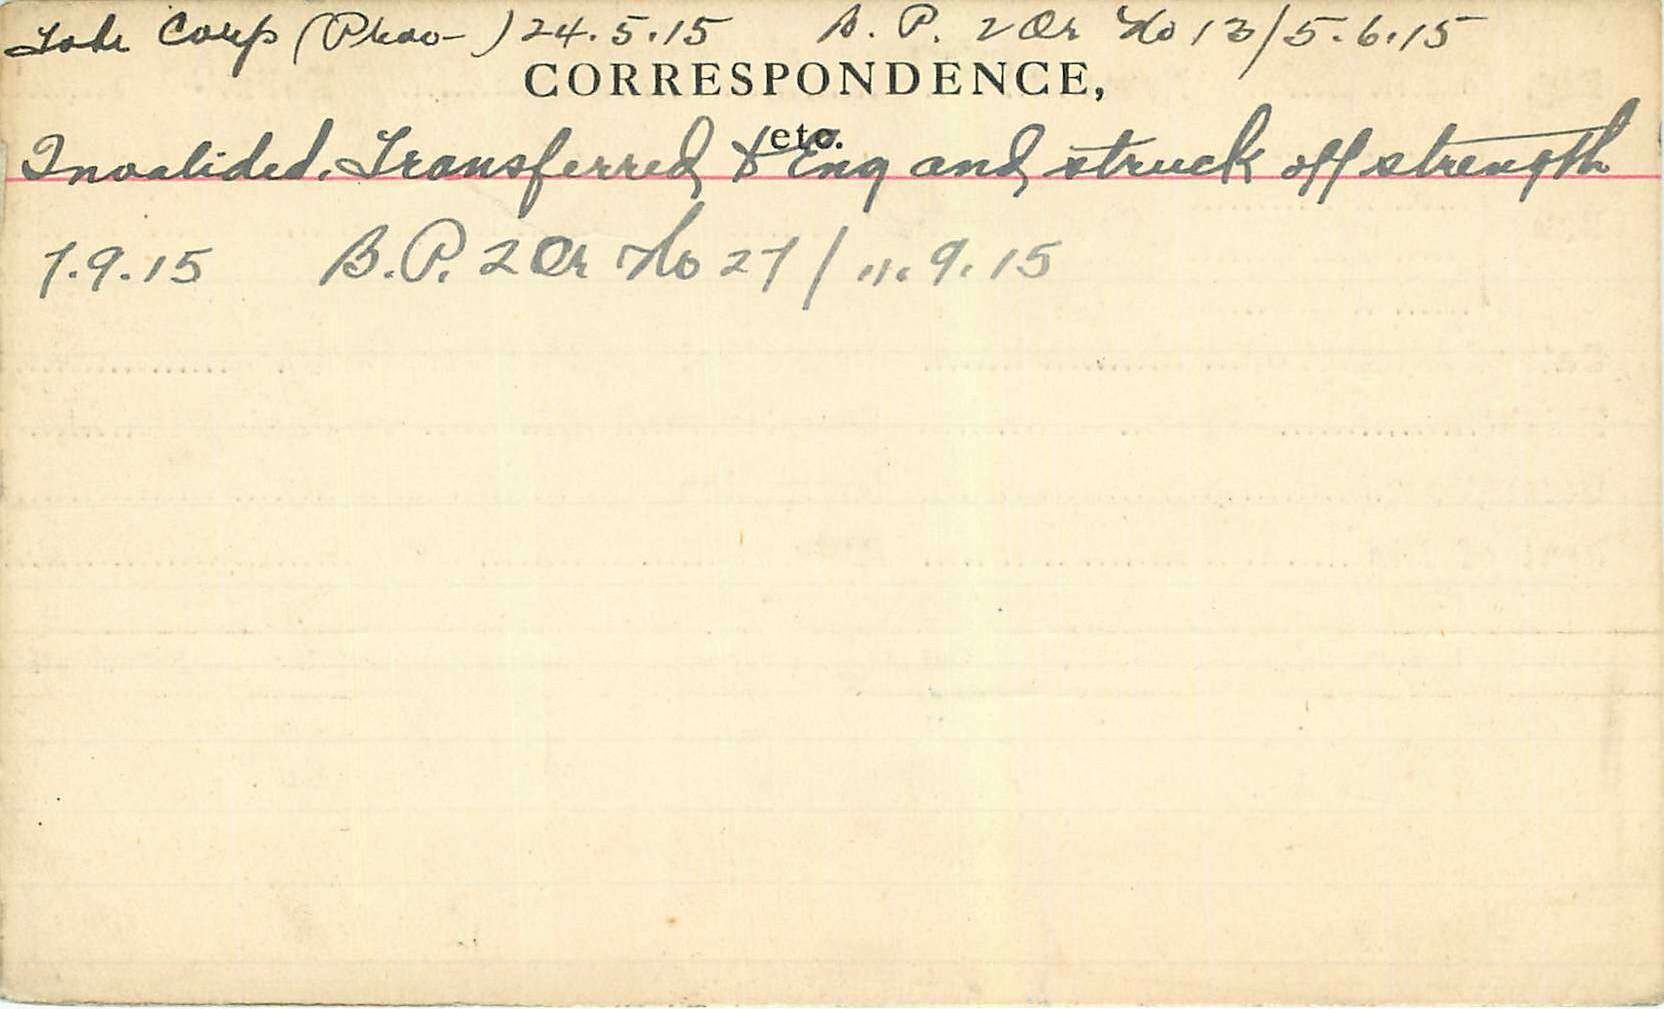 to be Corp (Prov-) 24.5.15 B. P. 2 Or No 13/5.6.15
CORRESPONDENCE,
etc.
Invalided. Transferred to Eng and struck off strength
7.9.15 B.P. 2 Or No 27/11.9.15